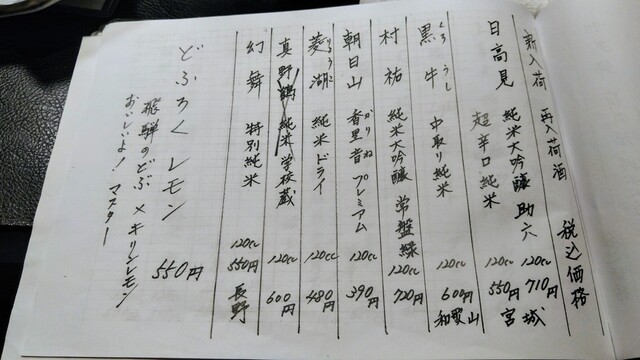 新入荷 再入荷酒 税込価格
日高見 純米大吟醸 助六 120cc 710円 宮城
超辛口純米 120cc 550円
くろ うし
黒牛 中取り純米 120cc 600円 和歌山
村祐 純米大吟醸 常盤緑 120cc 720円
かりね
朝日山 香里音 プレミアム 120cc 390円
りょうこ
菱湖 純米ドライ 120cc 480円
真野鶴 純米 学校蔵 120cc 600円
幻舞 特別純米 120cc 550円 長野
どぶろくレモン 550円
飛騨のどぶ×キリンレモン
おいしいよ! マスター